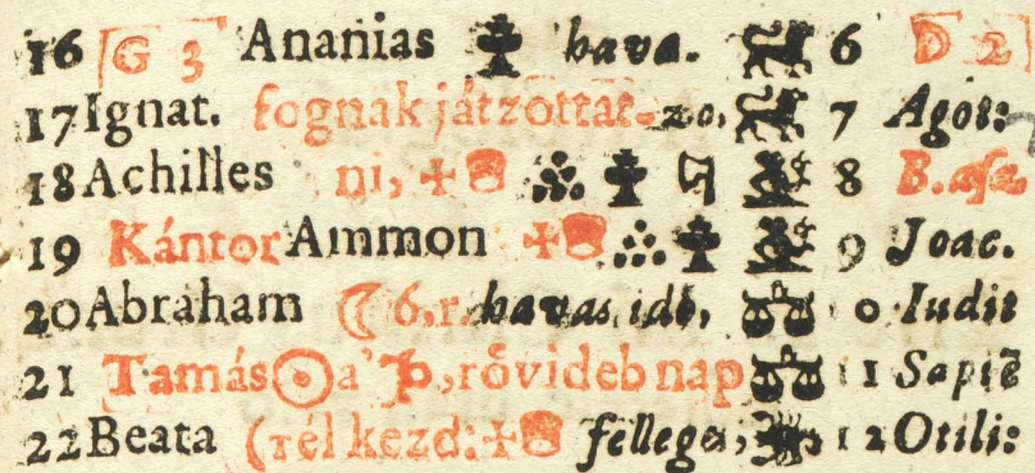 16 G 3 Ananias hava. 6 D 2
17 Ignat. fognak játzottat- zo, 7 Agot:
18 Achilles ni, 8 B.
19 Kántor Ammon 9 Joac.
20 Abraham ☾ 6, r. havas idö, 0 Iudit
21 Tamás ☉ a' ♑, rövideb nap 11 Sapiē
22 Beata (tél kezd: felleges, 12 Otili: